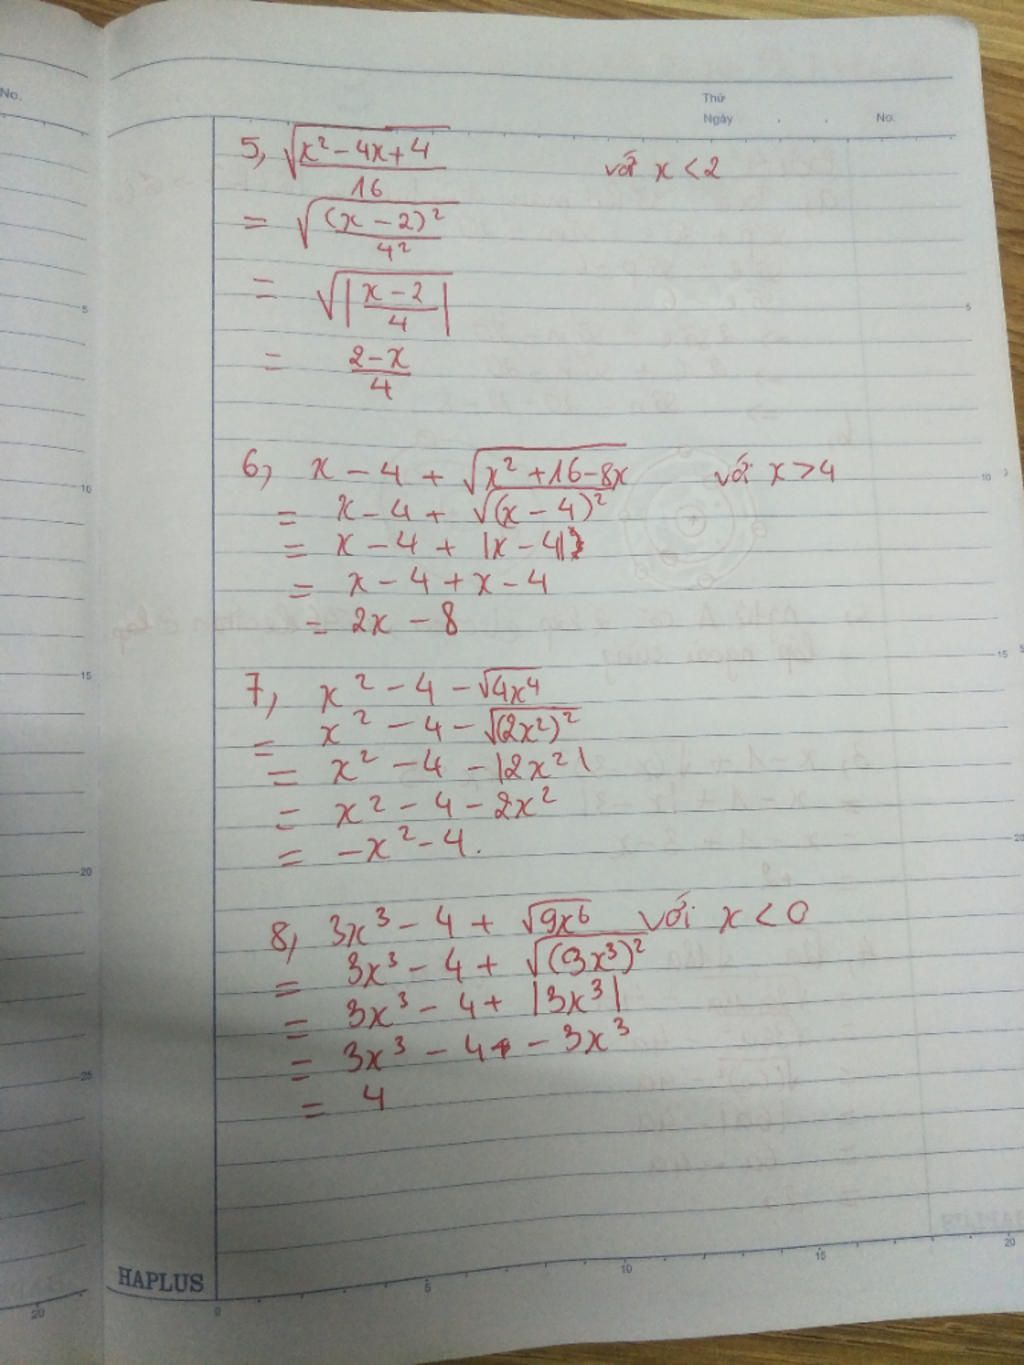 Thứ
Ngày . . No.
No.
5, √(x² - 4x + 4)/16 với x < 2
= √(x - 2)²/4²
= √|x - 2/4|
= 2 - x/4
6, x - 4 + √x² + 16 - 8x với x > 4
= x - 4 + √(x - 4)²
= x - 4 + |x - 4|
= x - 4 + x - 4
= 2x - 8
7, x² - 4 - √4x⁴
= x² - 4 - √(2x²)²
= x² - 4 - |2x²|
= x² - 4 - 2x²
= -x² - 4.
8, 3x³ - 4 + √9x⁶ với x < 0
= 3x³ - 4 + √(3x³)²
= 3x³ - 4 + |3x³|
= 3x³ - 4 - 3x³
= 4
HAPLUS
0 5 10 15 20